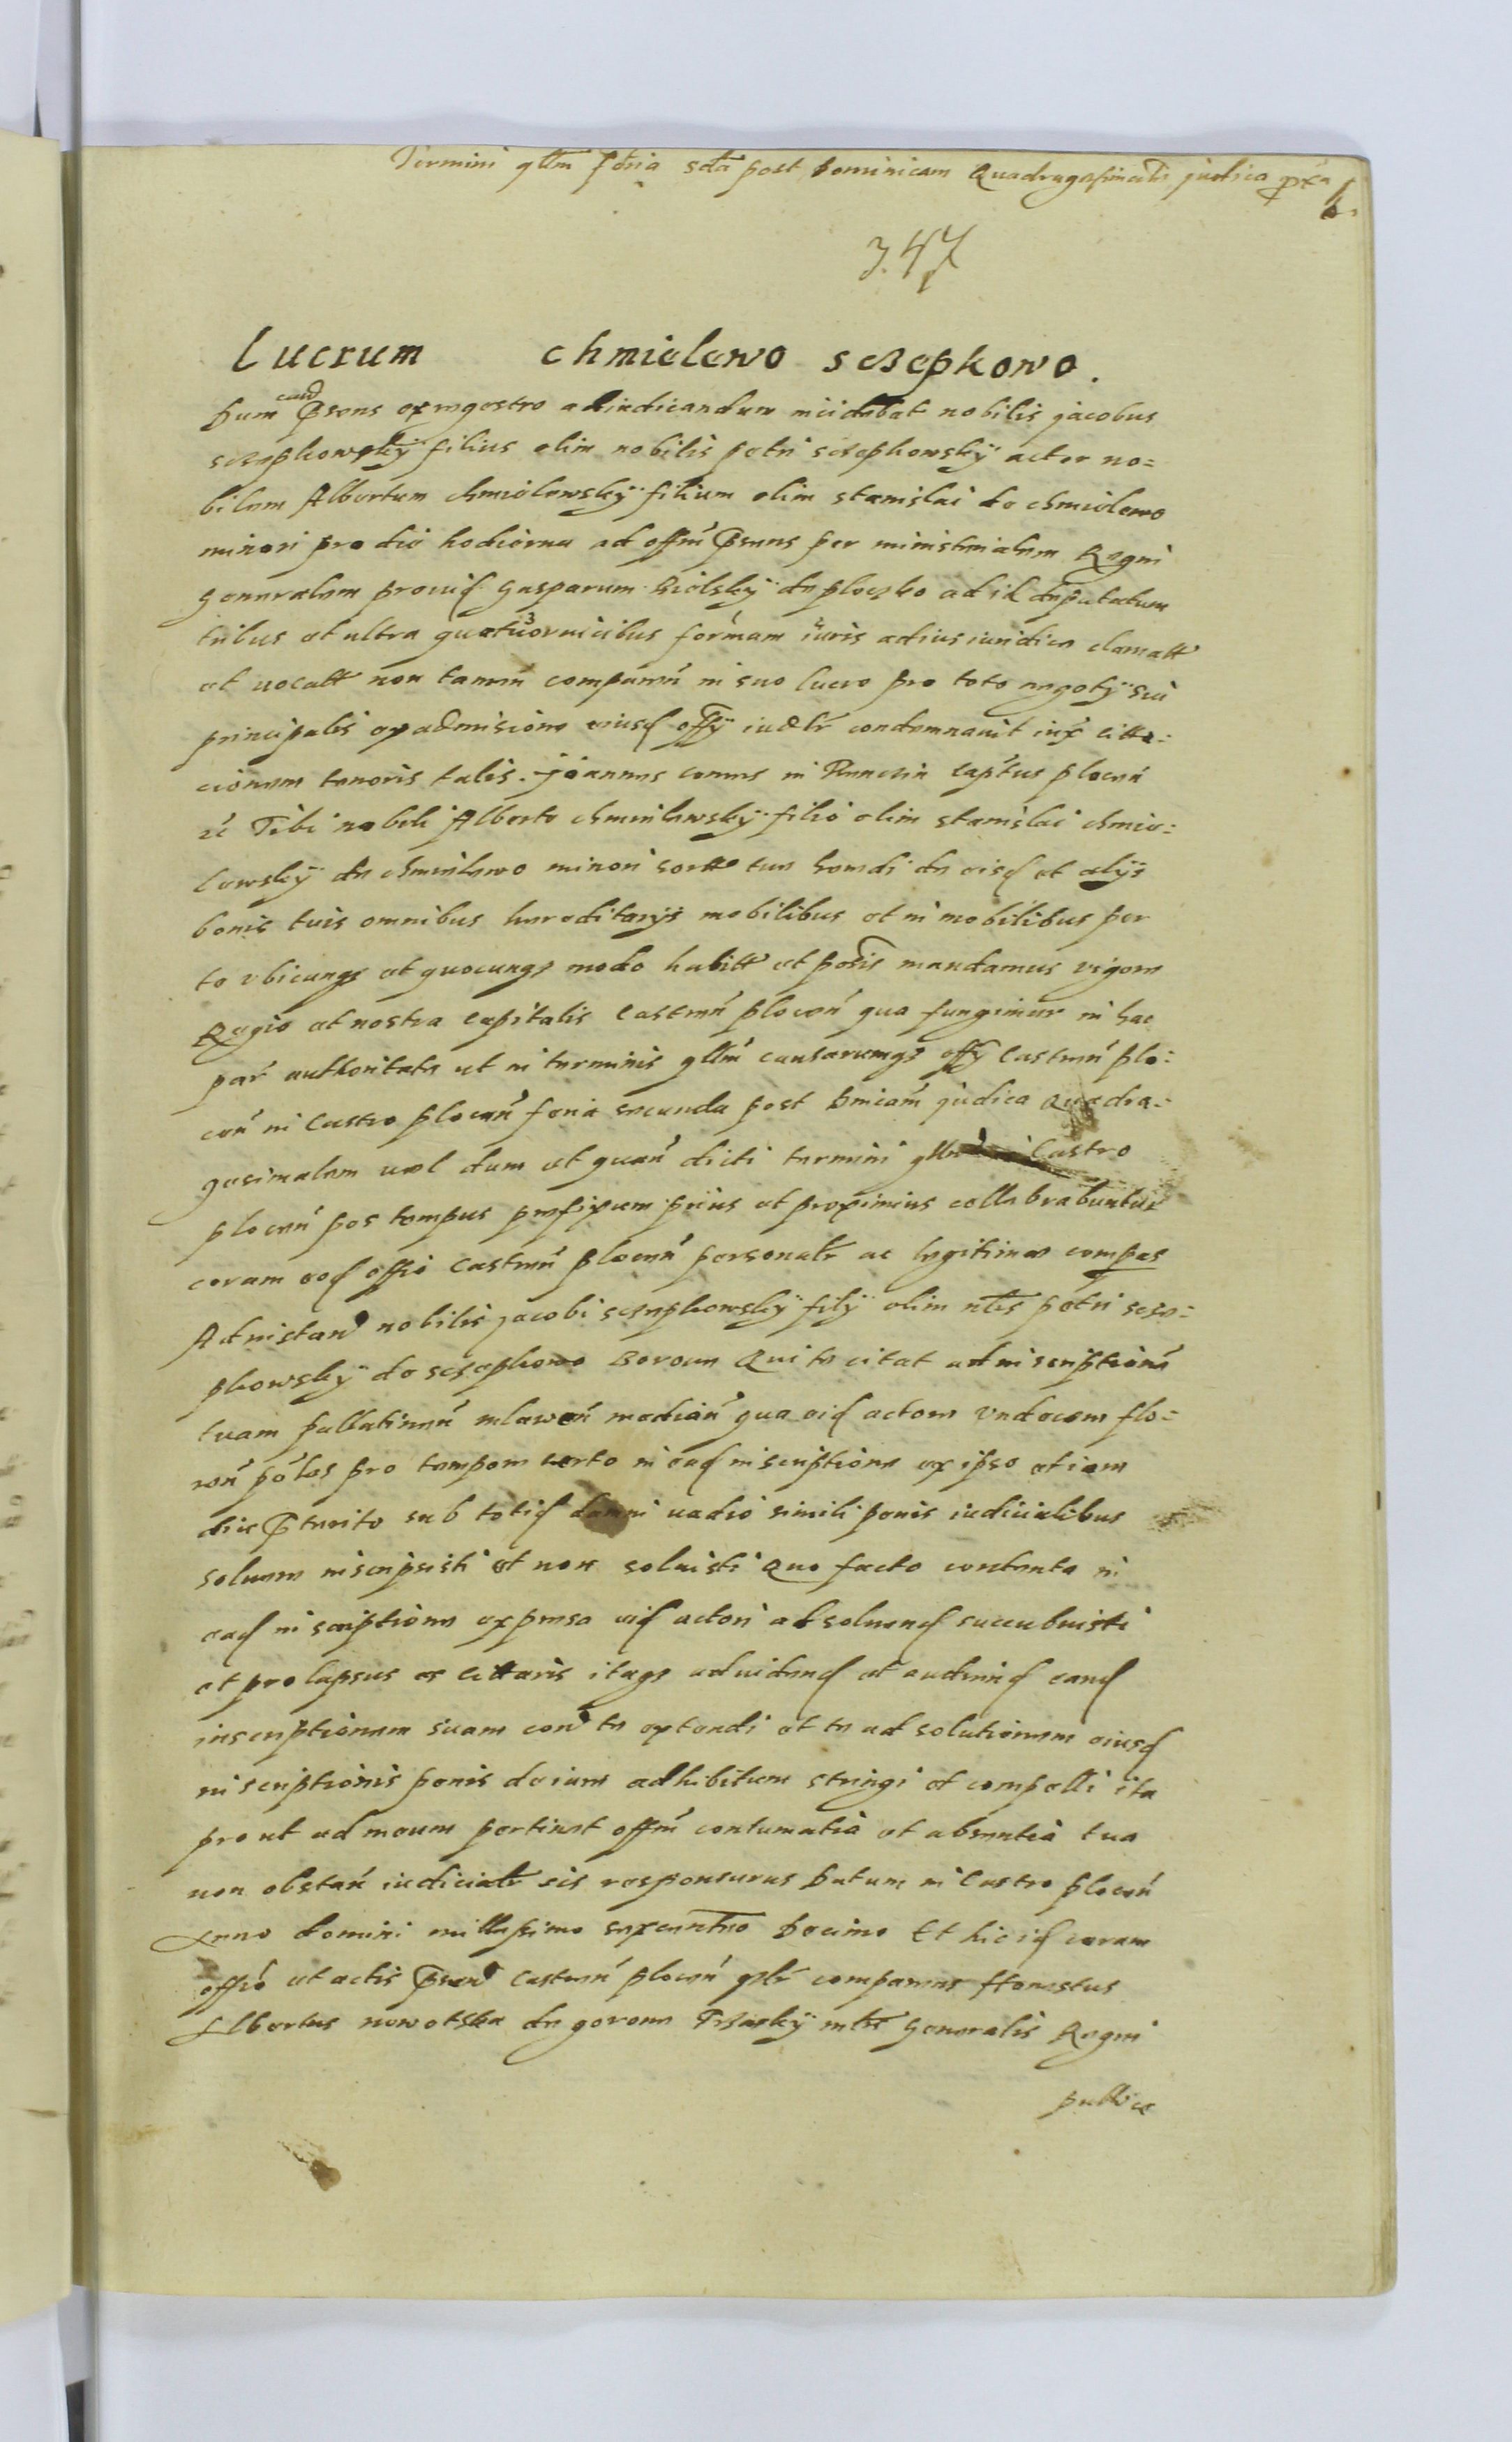 Termini gllm feria scda post Dominicam Quadragesimalem judica pxa
347
Lucrum chmielewo sczepkowo.
Dum caus Psens ex regestro adiudicandum incidebat nobilis jacobus
sczepkowsky filius olim nobilis petri sczepkowsky actor no=
bilem Albertum chmielewsky filium olim stanislai de chmielewo
minori pro die hodierna ad offm Psens per ministerialem Regni
generalem prouid Gasparum Bielsky de plocsko ad id deputatum
tribus et ultra quatuor uicibus formam iuris adius iuridice clamatt
et uocatt non tamen comparen in suo lucro pro toto negoty sui
principalis ex admisione eiusd offy iudlr condemnauit iux citta=
cionem tenoris talis. joannes comes in capteus plocen
zc Tibi nobili Alberto chmielewsky filio olim stanislai chmie=
lewsky de chmielewo minori sortte tua de eisd et alys
bonis tuis omnibus hereditarys mobilibus et in mobilibus per
te vbicunq et quocunq modo habitt et posis mandamus vigore
Regia et nostra capitalis castren plocen qua fungimur in hac
par authoritate ut in terminis gllm causarumq offy castren plo=
cen in castro plocen feria secunda post Dmicam judica Quadra=
gesimalem uel dum et quan dicti termini gllm in Castro
plocen pos tempus prefixum prius et proximius cellebrabuntur
coram eod offio castren plocen personalr ac legitimae compas
Ad instan nobilis jacobi sczepkowsky fily olim nlis petri scze=
pkowsky de sczepkowo Qui te citat ad inscriptione
tuam pallatinen mlawen median qua eid actori vndecem flo=
ren poles pro tempore certo in ead inscriptione ex ipso etiam
die Pterito sub totid damni uadio simili penis iudicialibus
soluere inscripsisti et non soluisti Quo facto contenta in
ead inscriptione expresa eid actori ad soluend succubuisti
et prolapsus es cittaris itaqs aduidend et audiend eand
inscriptionem suam con te extendi et te ad solutionem eiusd
inscriptionis penis de iure adhibitum stringi et compelli ita
prout ad meum pertinet offm contumatia et absentia tua
non obstan iudicialr sis responsurus Datum in Castro plocen
Anno domini millesimo sexcentmo Decimo Et hic id coram
offio et actis Psen castren plocen pslr comparens Honestus
Albertus nowotska de gorene Trzasky mlis Generalis Regni
publice